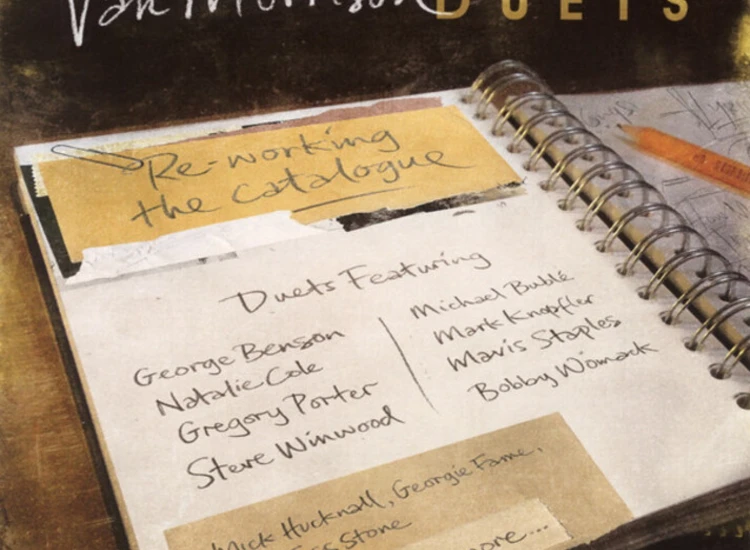 Van Morrison DUETS
Re-working
the catalogue
Duets Featuring
George Benson
Natalie Cole
Gregory Porter
Steve Winwood
Michael Bublé
Mark Knopfler
Mavis Staples
Bobby Womack
Mick Hucknall, Georgie Fame,
Stone
more...